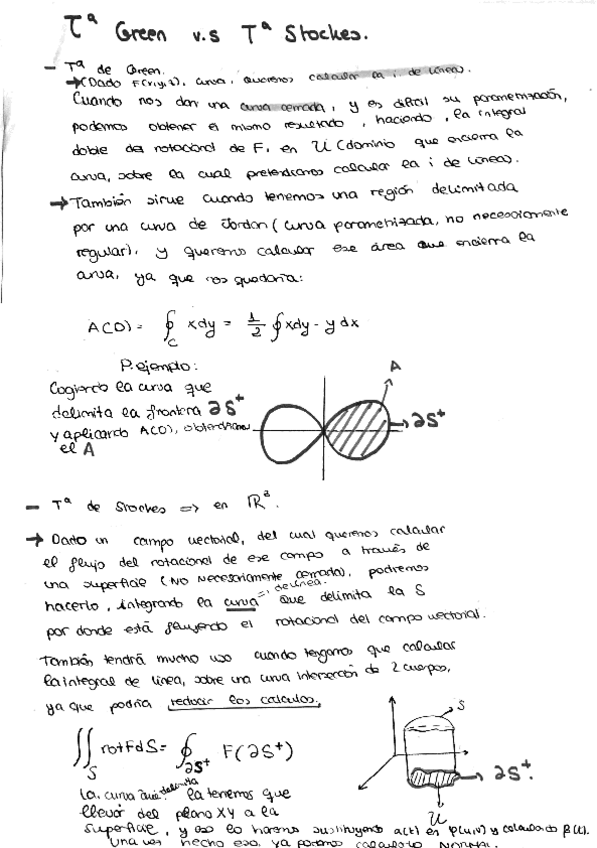 Tª Green v.s Tª Stockes.
- Tª de Green.
→ (Dado F(x,y,z), curva, queremos calcular la i. de líneas).
Cuando nos dan una curva cerrada, y es difícil su parametrización,
podemos obtener el mismo resultado, haciendo, la integral
doble del rotacional de F, en U (dominio que encierra la
curva, sobre la cual pretendíamos calcular la i de líneas).
→ También sirve cuando tenemos una región delimitada
por una curva de Jordan (curva parametrizada, no necesariamente
regular), y queremos calcular ese área que encierra la
curva, ya que nos quedaría:
A(D) = ∮_C xdy = 1/2 ∮ xdy - y dx
P.ejemplo:
Cogiendo la curva que
delimita la frontera ∂S⁺
y aplicando A(D), obtendríamos
el A
A
∂S⁺
- Tª de Stockes => en ℝ³.
→ Dado un campo vectorial, del cual queremos calcular
el flujo del rotacional de ese campo a través de
una superficie (NO necesariamente cerrada), podremos
hacerlo, integrando la curva =, de línea. que delimita la S
por donde está fluyendo el rotacional del campo vectorial.
También tendrá mucho uso cuando tengamos que calcular
la integral de línea, sobre una curva intersección de 2 cuerpos,
ya que podría reducir los calculos.
∬_S rotFdS = ∮_∂S⁺ F(∂S⁺)
S
∂S⁺.
U
la curva que delimita la tenemos que
llevar del plano XY a la
superficie, y eso lo haremos sustituyendo α(t) en φ(u,v) y calculando β(t).
Una vez hecho eso, ya podemos calcularlo NORMAL.